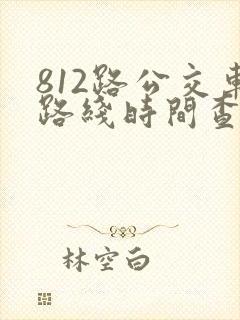 812路公交車
路綫時間查
林空白